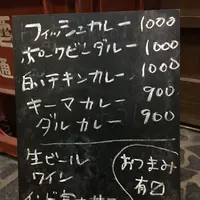 フィッシュカレー 1000
ポークビンダルー 1000
白いチキンカレー 1000
キーマカレー 900
ダルカレー 900
生ビール
ワイン
おつまみ
有